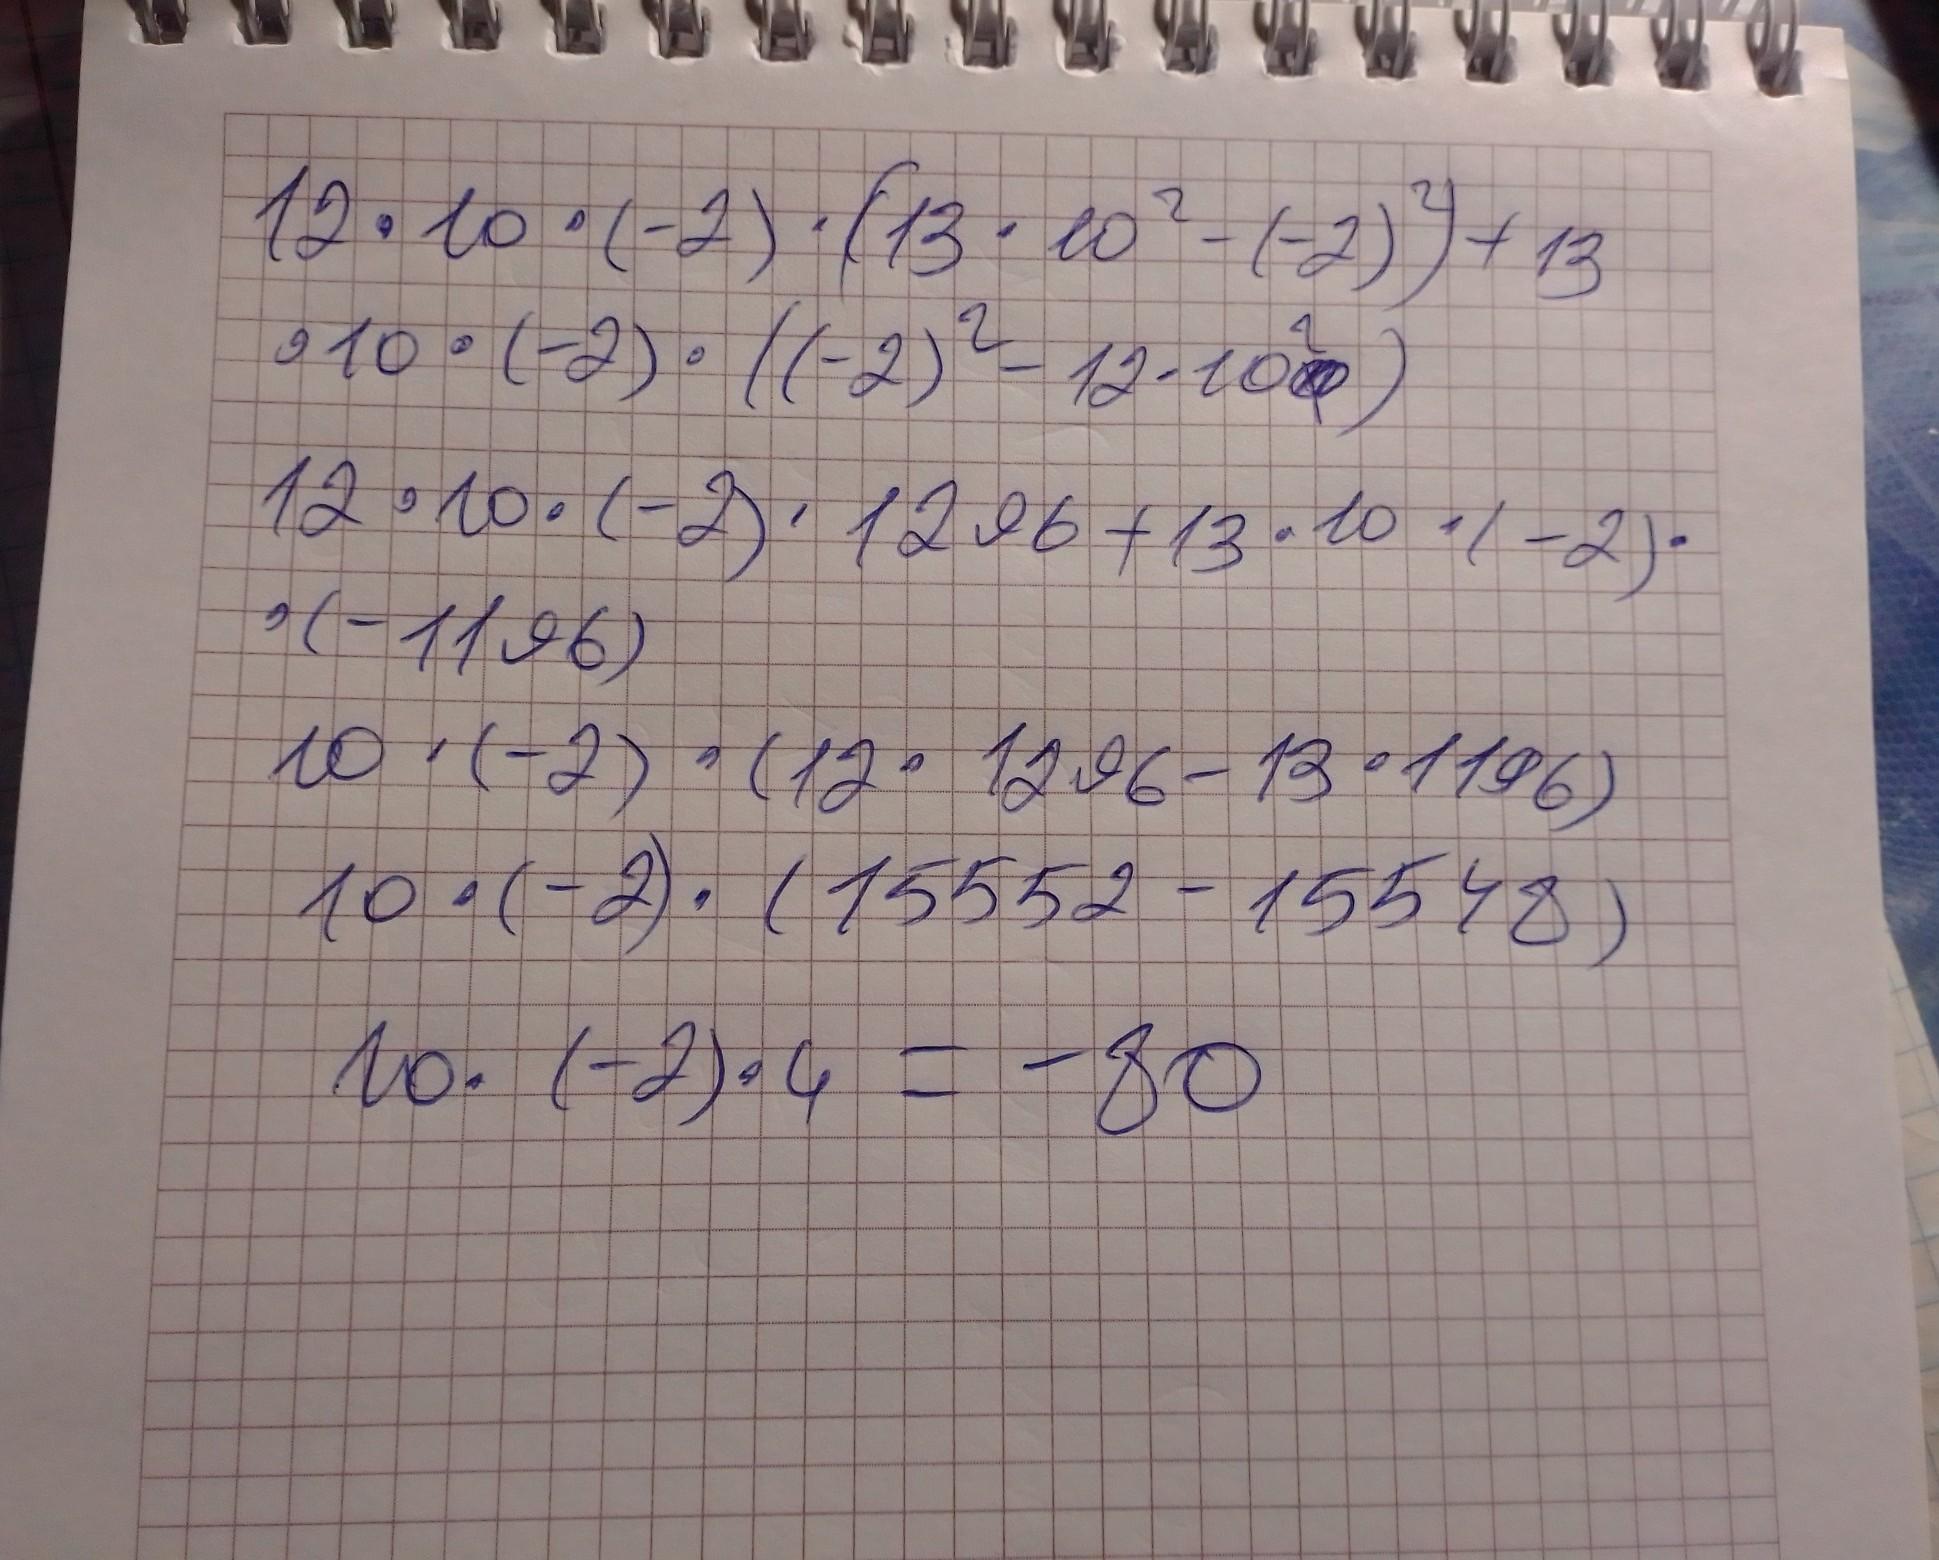 12 · 10 · (-2) · (13 · 10² - (-2)²) + 13
· 10 · (-2) · ((-2)² - 12 · 10²)
12 · 10 · (-2) · 1296 + 13 · 10 · (-2) ·
· (-1196)
10 · (-2) · (12 · 1296 - 13 · 1196)
10 · (-2) · (15552 - 15548)
10 · (-2) · 4 = -80